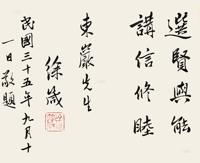 選賢與能
講信修睦
東嚴先生
徐箴
民國三十五年九月十
一日敬題